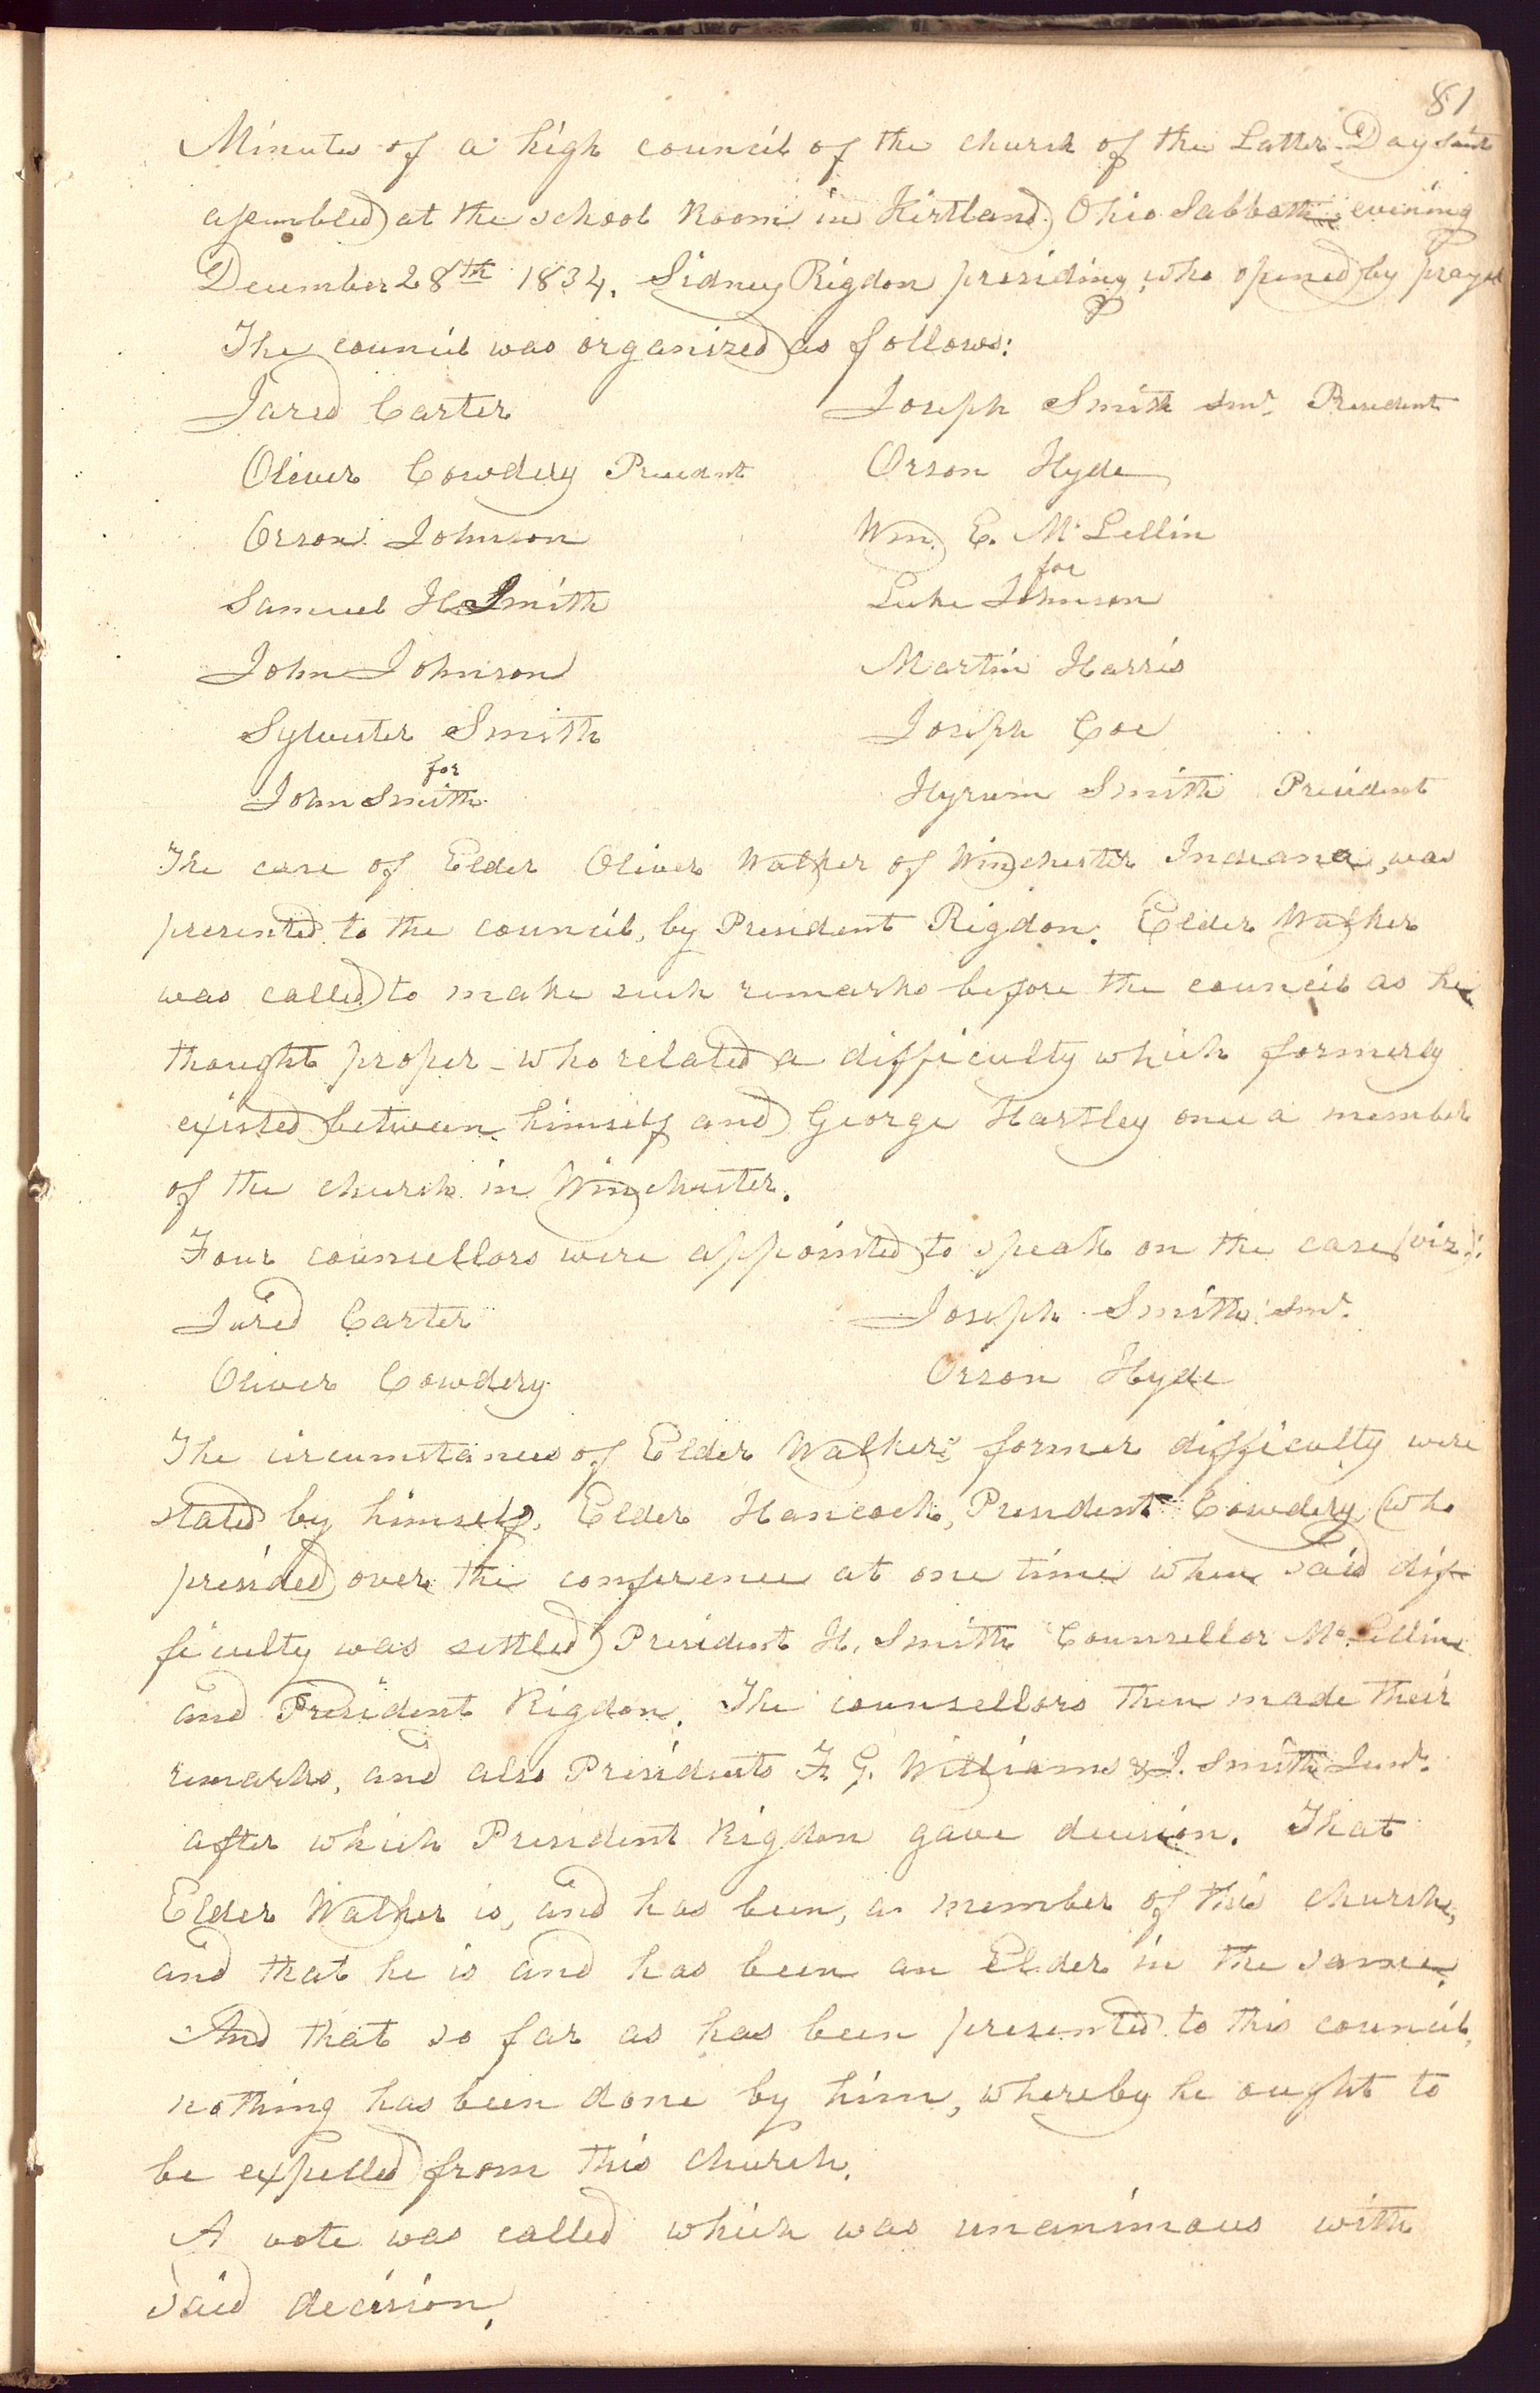 81
Minutes of a high council of the church of the Latter Day Saints
assembled at the school Room in Kirtland Ohio Sabbath evening
December 28th 1834. Sidney Rigdon presiding, who opened by prayer
The council was organized as follows:
Jared Carter Joseph Smith Senr. President
Oliver Cowdery President Orson Hyde
Orson Johnson Wm. E. McLellin
for
Samuel H. Smith Luke Johnson
John Johnson Martin Harris
Sylvester Smith Joseph Coe
for
John Smith Hyrum Smith President
The case of Elder Oliver Walker of Winchester Indiana, was
presented to the council, by President Rigdon. Elder Walker
was called to make such remarks before the council as he
thought proper - who related a difficulty which formerly
existed between himself and George Hartley once a member
of the church in Winchester.
Four counsellors were appointed to speak on the case (viz):
Jared Carter Joseph Smith Senr.
Oliver Cowdery Orson Hyde
The circumstances of Elder Walker's former difficulty were
stated by himself, Elder Hancock, President Cowdery (who
presided over the conference at one time when said dif-
ficulty was settled) President H. Smith Counsellor McLellin
and President Rigdon. The counsellors then made their
remarks, and also Presidents F. G. Williams & J. Smith Junr.
after which President Rigdon gave decision. That
Elder Walker is, and has been, a member of this church,
and that he is and has been an Elder in the same.
And that so far as has been presented to this council,
nothing has been done by him, whereby he ought to
be expelled from this church.
A vote was called which was unanimous with
said decision.